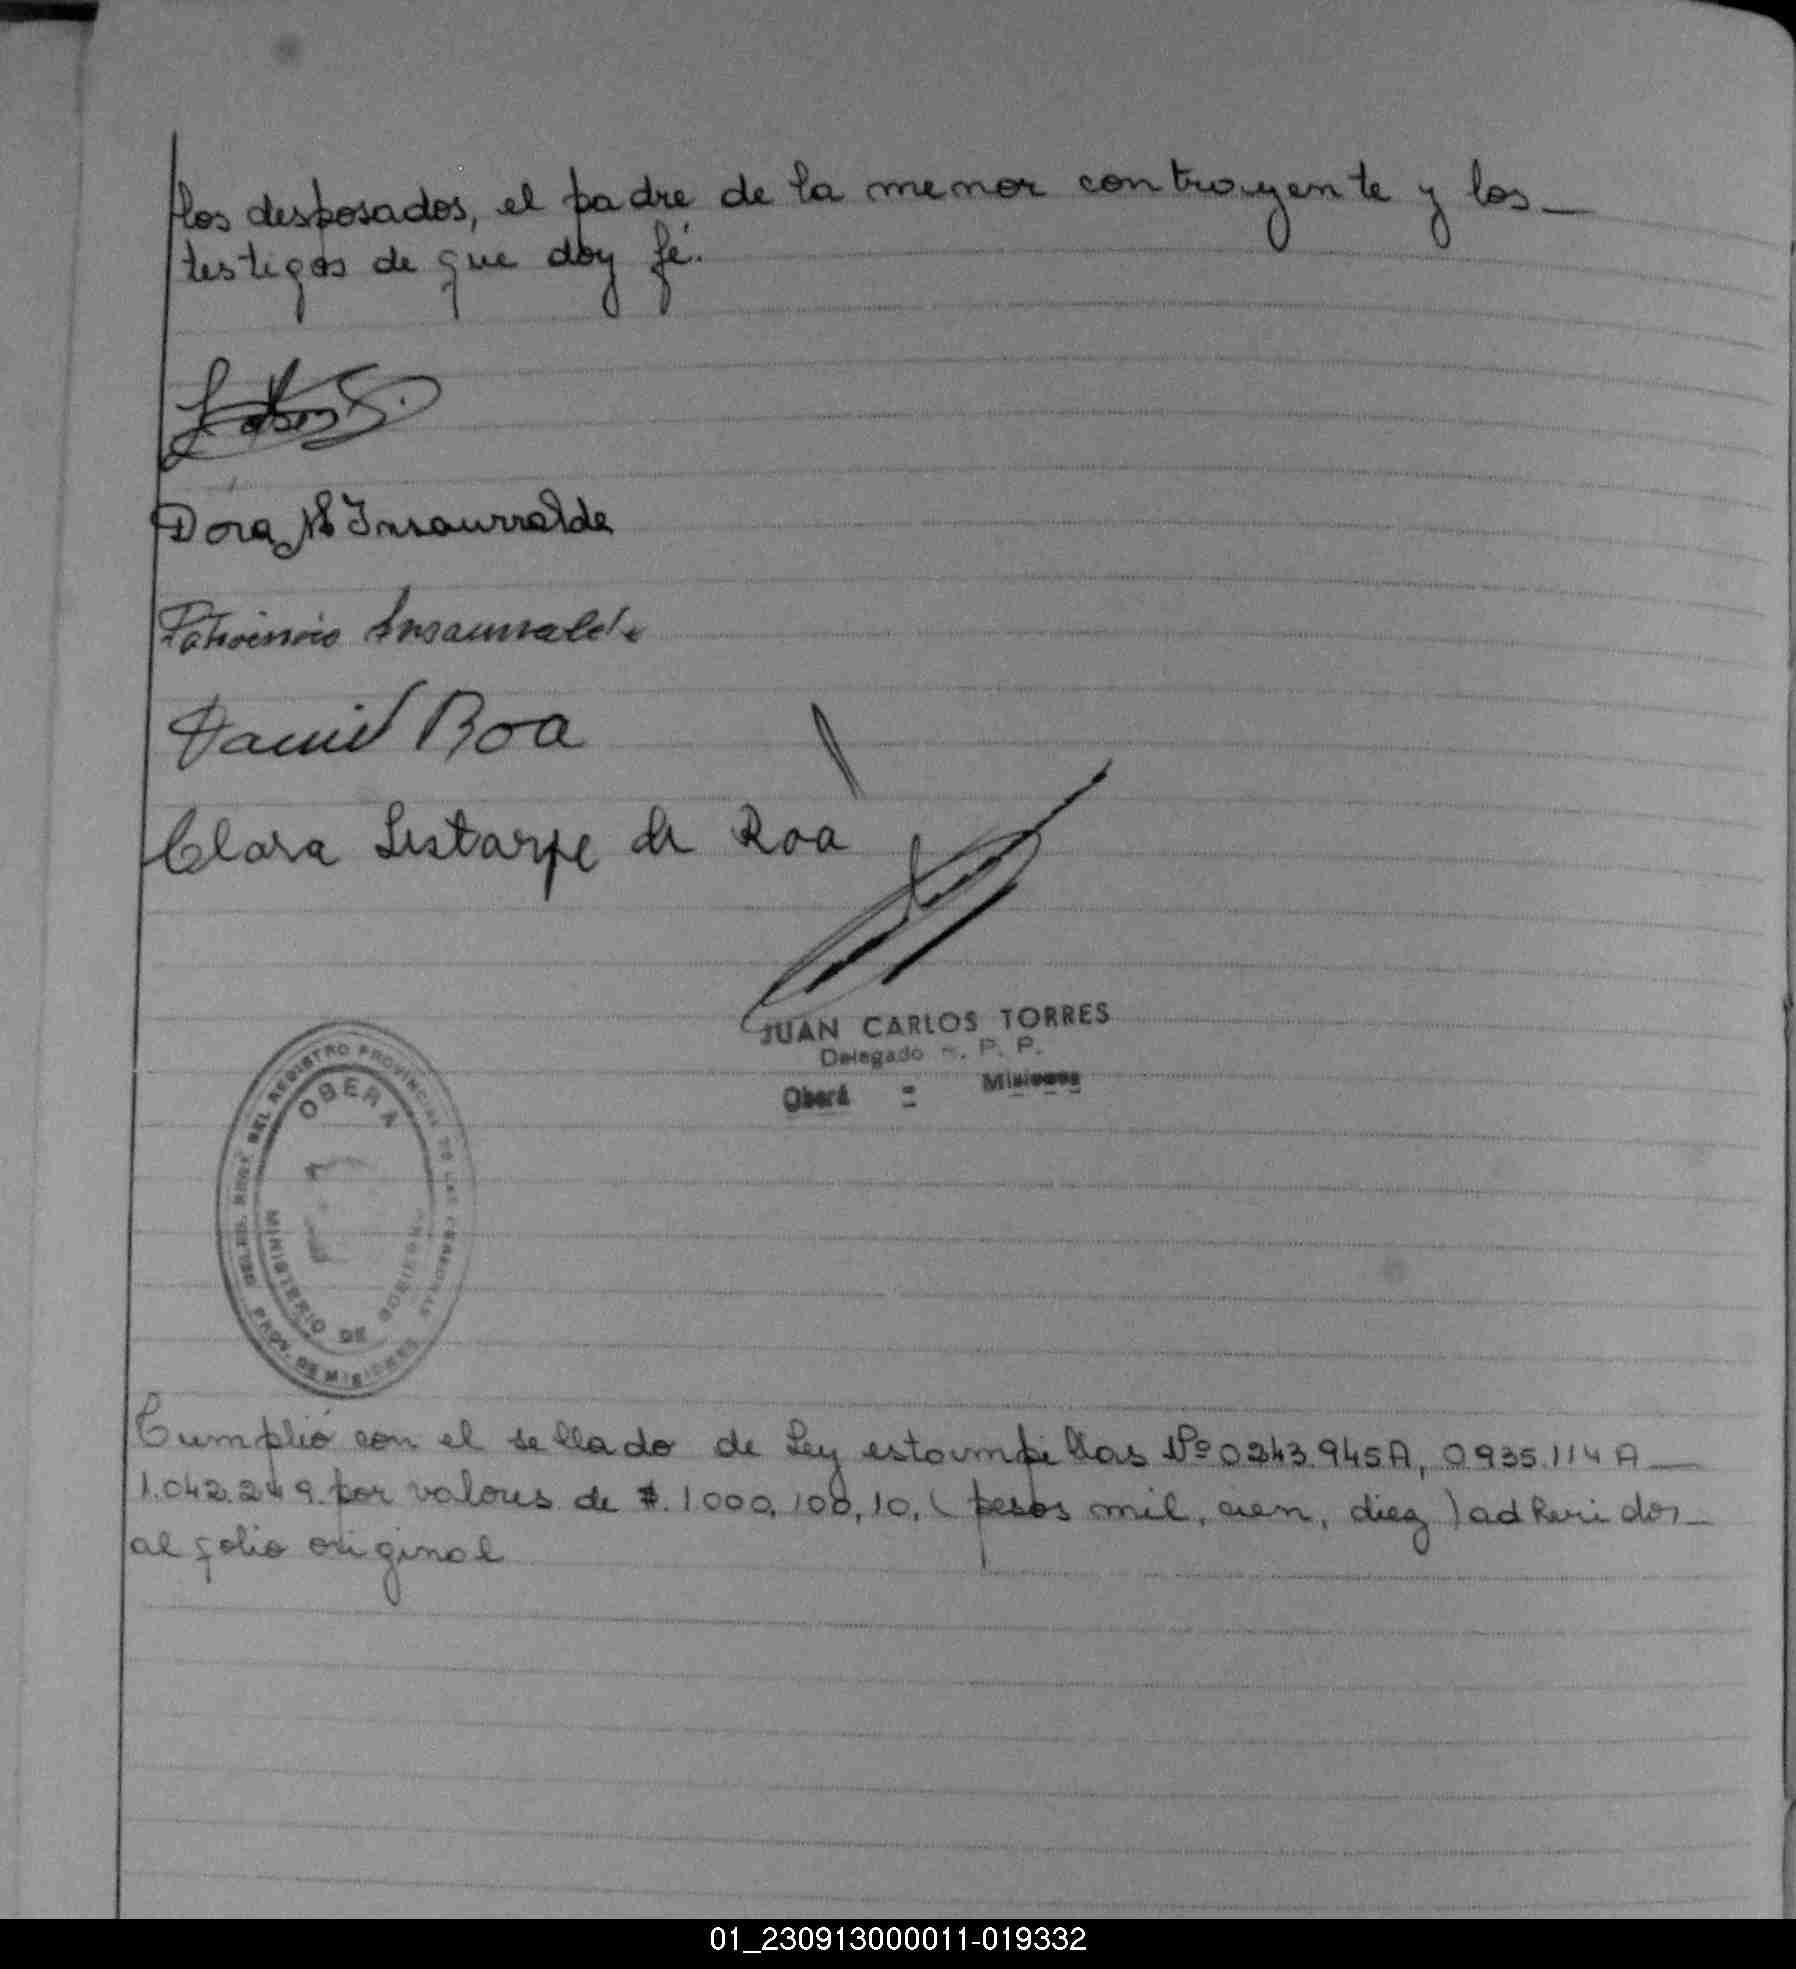 los desposados, el padre de la menor contrayente y los_
testigos de que doy fé.
Dora N Insaurralde
Patrocinio Insaurralde
Daniel Roa
Clara Listarpe de Roa
JUAN CARLOS TORRES
Delegado R. P. P.
Oberá = Misiones
DELEG. REGT. DEL REGISTRO PROVINCIAL DE LAS PERSONAS
OBERA
MINISTERIO DE GOBIERNO
PROV. DE MISIONES
Cumplió con el sellado de Ley estampillas Nº 0243.945A, 0935.114A_
1.042.249. por valores de $. 1.000, 100, 10, (pesos mil, cien, diez) adheridos_
al folio original
01_230913000011-019332